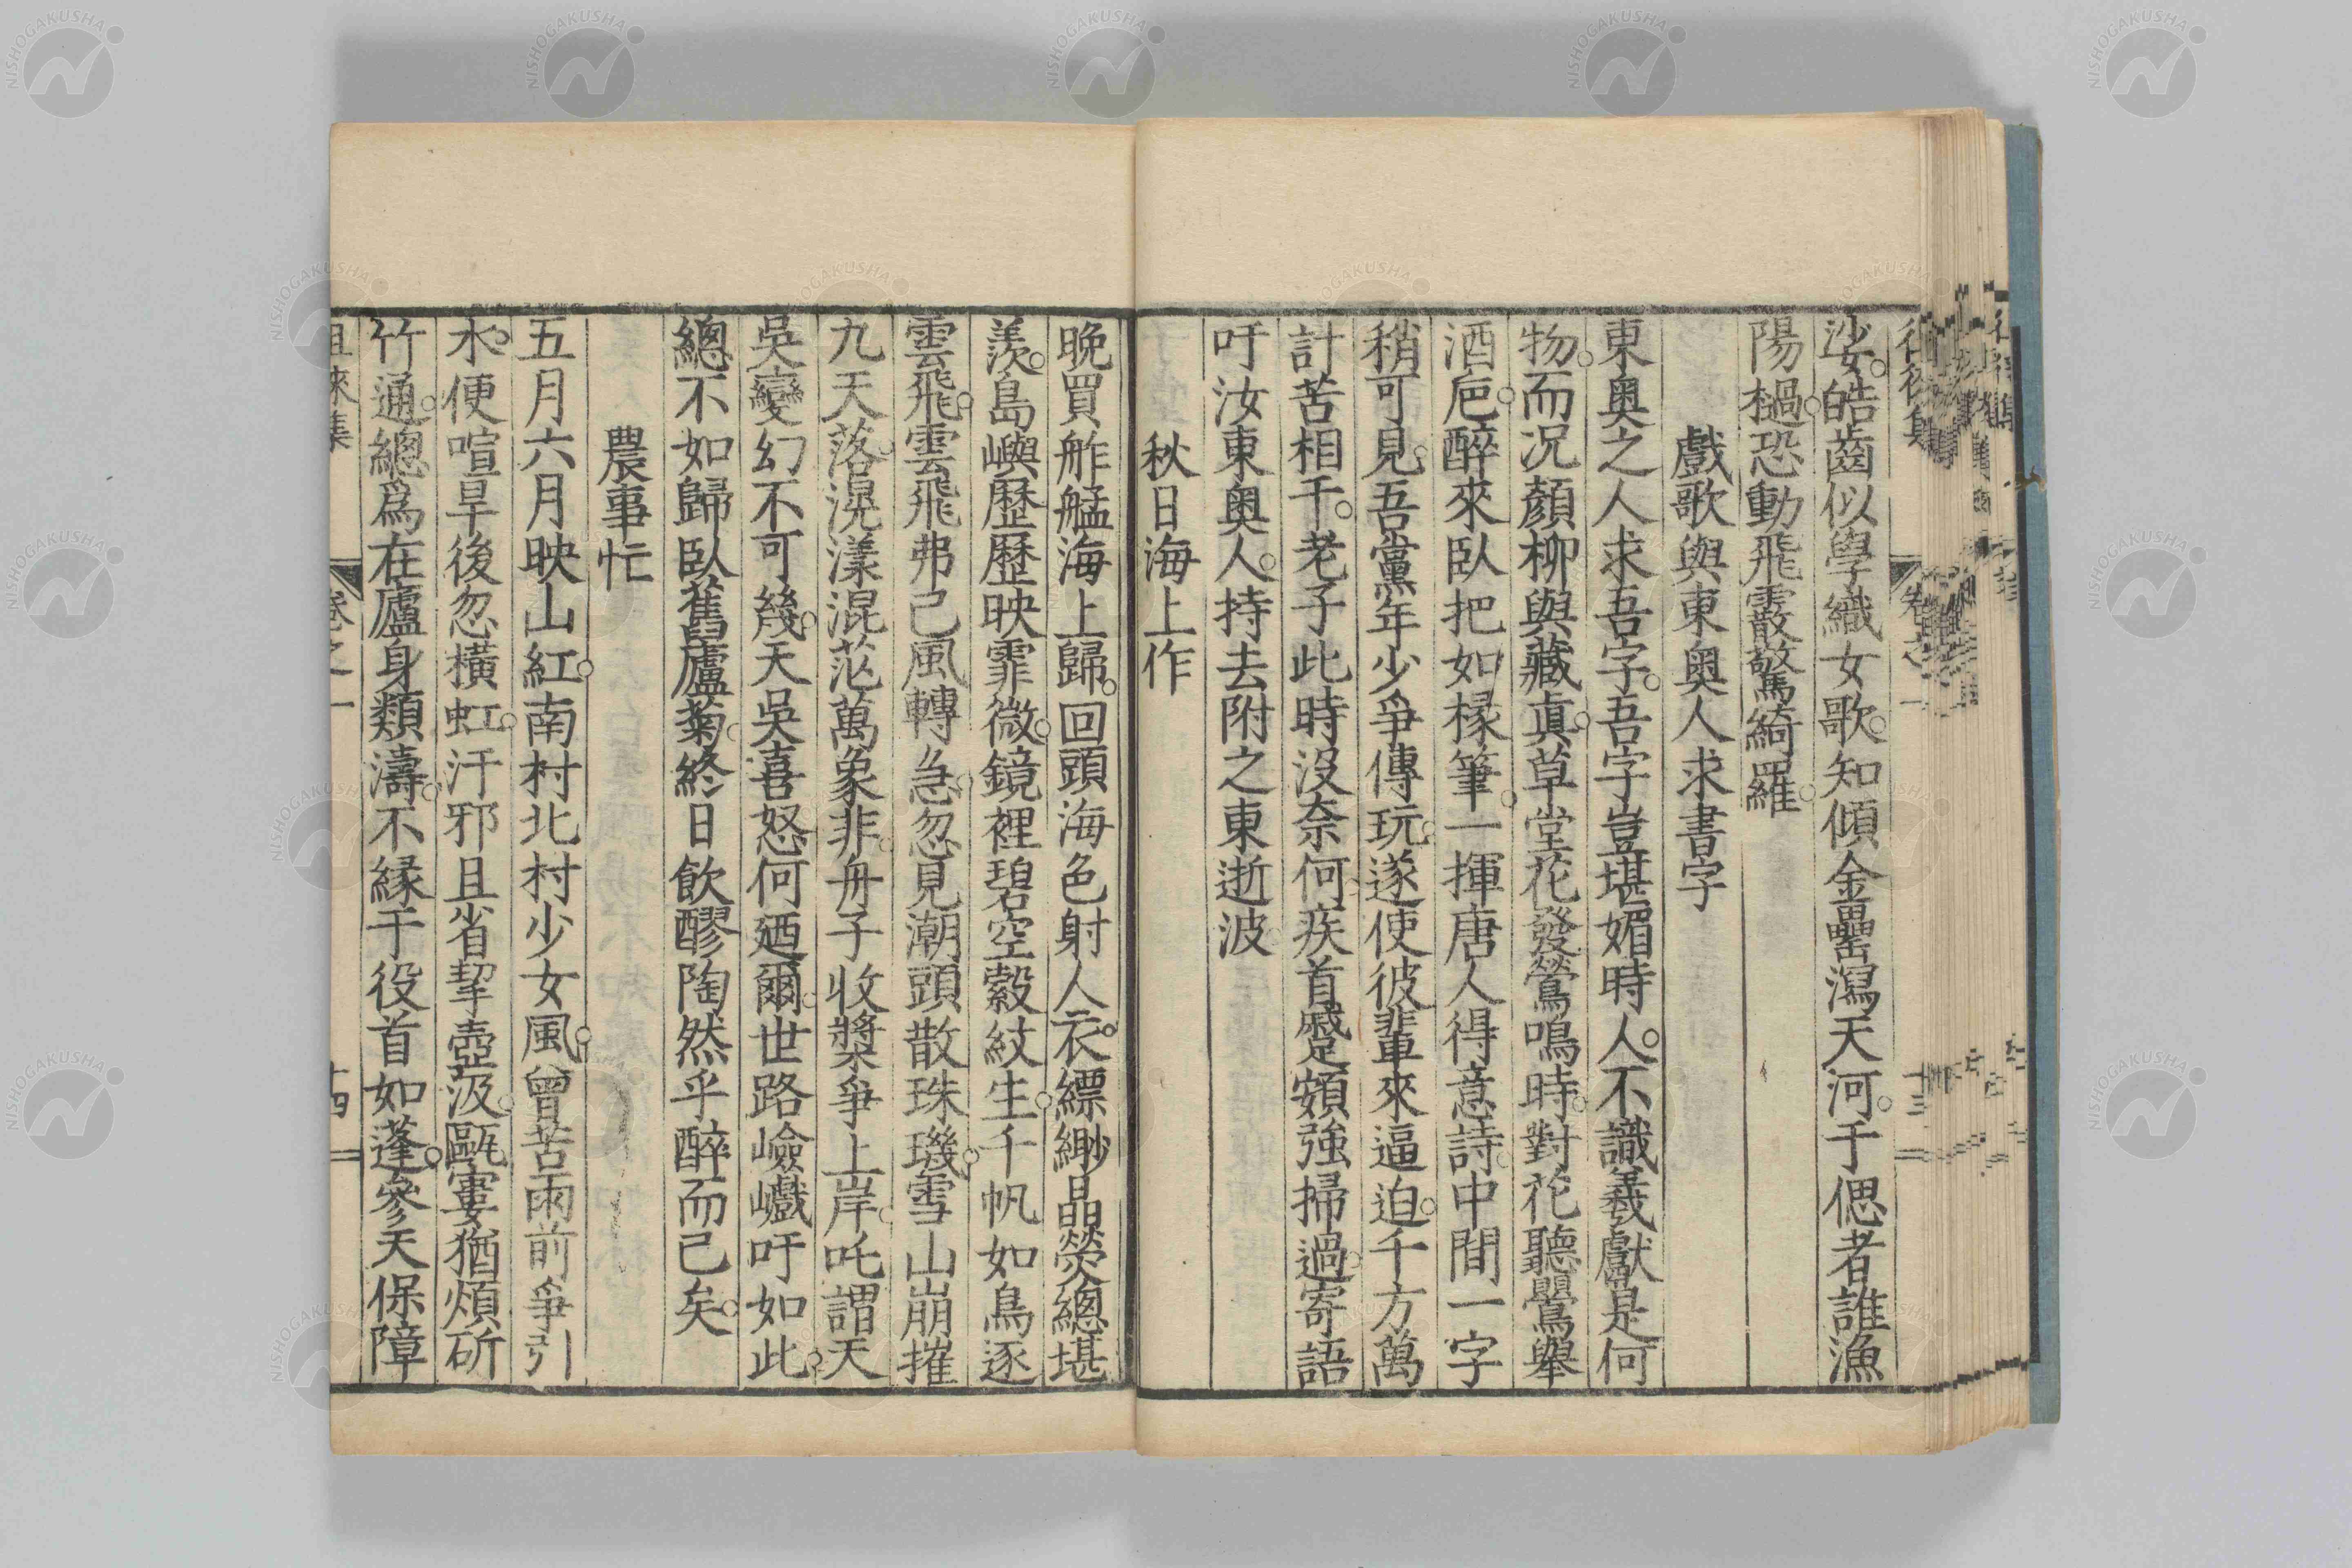 娑。皓齒似學織女歌。知傾金罍瀉天河。于偲者誰漁
陽檛。恐動飛霰驚綺羅。
戲歌與東奧人求書字
東奧之人求吾字。吾字豈堪媚時人。不識羲獻是何
物。而况顏柳與藏眞。草堂花發鶯鳴時。對花聽鸎舉
酒巵。醉來臥把如椽筆。一揮唐人得意詩。中間一字
稍可見。吾黨年少爭傳玩。遂使彼輩來逼迫。千方萬
計苦相干。老子此時沒奈何。疾首蹙頞強掃過。寄語
吁汝東奧人。持去附之東逝波。
秋日海上作
晚買舴艋海上歸。回頭海色射人衣。縹緲晶熒總堪
羨。島嶼歷歷映霏微。鏡裡碧空縠紋生。千帆如鳥逐
雲飛。雲飛弗已風轉急。忽見潮頭散珠璣。雪山崩摧
九天落。滉漾混茫萬象非。舟子收槳爭上岸。吒謂天
吳變幻不可幾。天吳喜怒何廼爾。世路嶮巇吁如此。
總不如歸臥舊廬菊。終日飲醪陶然乎醉而已矣。
農事忙
五月六月映山紅。南村北村少女風。曾苦雨前爭引
水。便喧旱後忽橫虹。汙邪且省挈壺汲。甌窶猶煩斫
竹通。總爲在廬身類濤。不緣于役首如蓬。參天保障
徂徠集 卷之一 十四
NISHOGAKUSHA